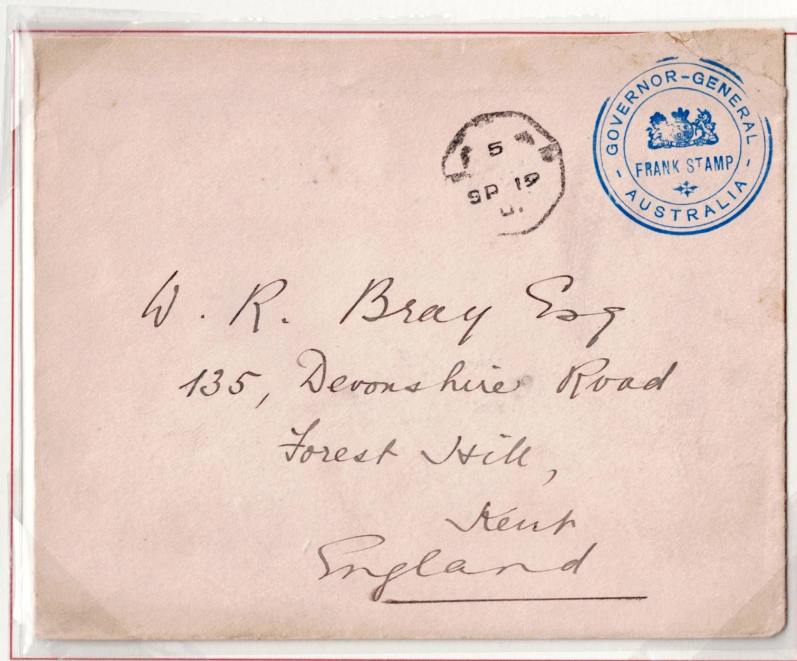 GOVERNOR-GENERAL
FRANK STAMP
- AUSTRALIA -
5
SP 19
W. R. Bray Esq
135, Devonshire Road
Forest Hill,
Kent
England